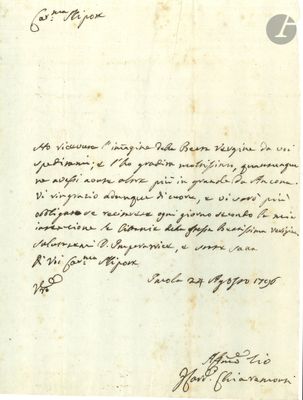 Car.ma Nipote
Ho ricevuto l'imagine della Beata Vergine da voi
speditami; e l'ho gradita moltissimo, quantunque
ne avessi avute altre più in grande da Ancona.
Vi ringrazio adunque di cuore, e vi sarò più
obligato se reciterete ogni giorno secondo la mia
intenzione le Litanie della stessa Beatissima Vergine.
Salutatemi D. Imperatrice, e sono
Di Voi Car.ma Nipote
Imola 24 Agosto 1796
Aff.mo Zio
Card. Chiaramonti